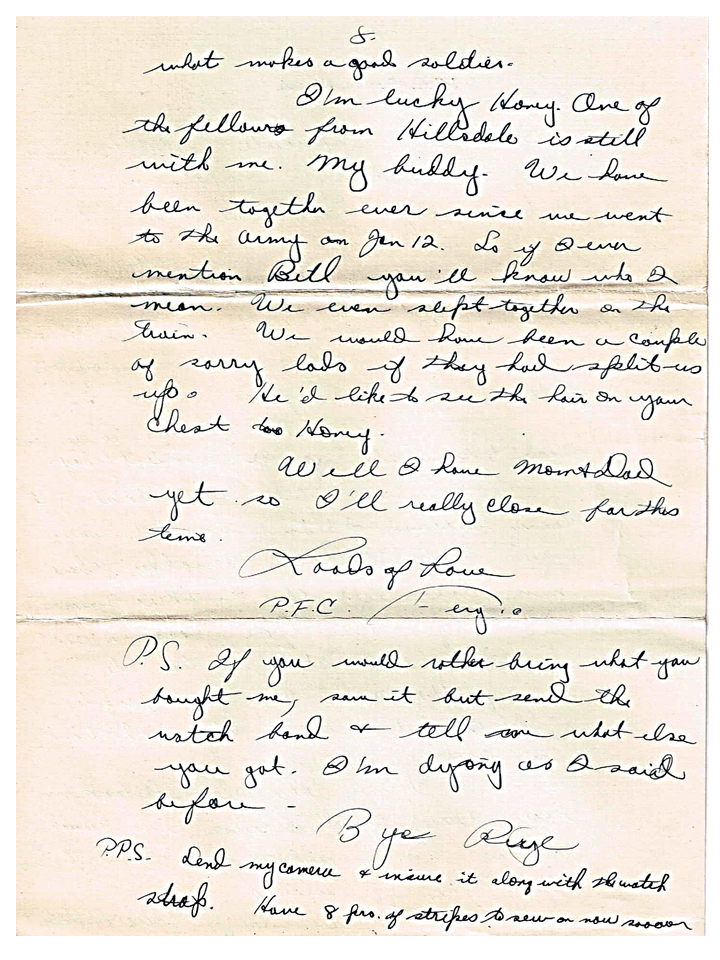 8.
what makes a good soldier.
I'm lucky Honey. One of
the fellows from Hillsdale is still
with me. My buddy. We have
been together ever since we went
to the army on Jan 12. So if I ever
mention Bill you'll know who I
mean. We even slept together on the
train. We would have been a couple
of sorry lads if they had split us
up. He'd like to see the hair on your
chest too Honey.
Well I have Mom & Dad
yet so I'll really close for this
time.
Loads of Love
P.F.C.
P.S. If you would rather bring what you
bought me, save it but send the
watch band & tell me what else
you got. I'm dying as I said
before -
Bye
P.P.S. Send my camera & insure it along with the watch
strap. Have 8 prs. of stripes to sew on now